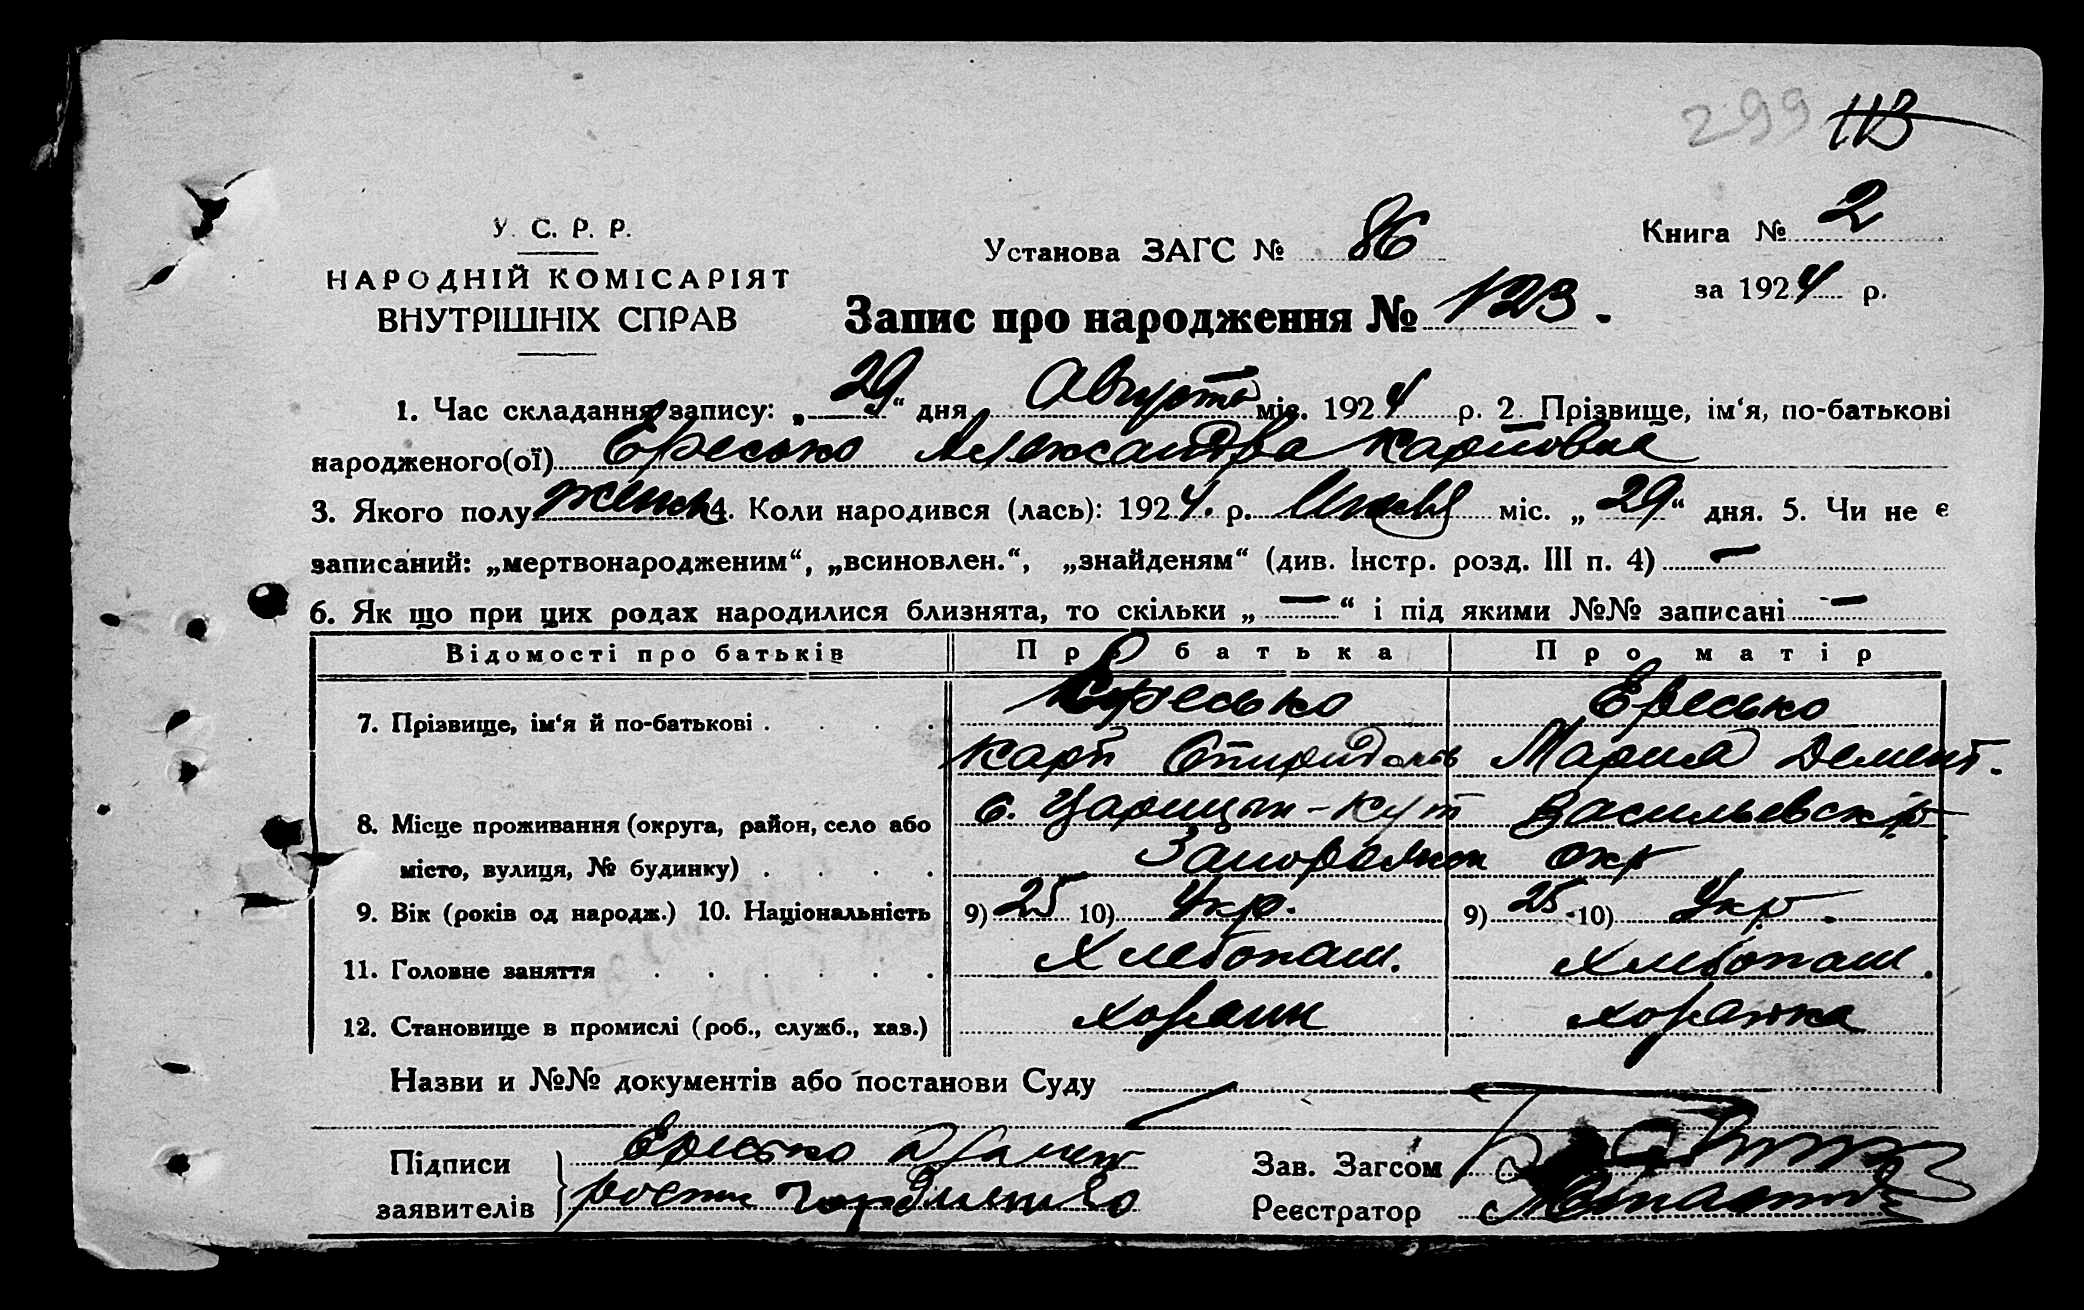 299 113
У. С. Р. Р.
НАРОДНІЙ КОМІСАРІЯТ
ВНУТРІШНІХ СПРАВ
Установа ЗАГС № 86
Книга № 2
за 1924 р.
Запис про народження № 123.
1. Час складання запису: „29“ дня Августа міс. 1924 р. 2. Прізвище, ім‘я, по-батькові
народженого(ої) Ересько Александра Карповна
3. Якого полу женск 4. Коли народився (лась): 1924. р. міс. „29“ дня. 5. Чи не є
записаний: „мертвонародженим“, „всиновлен.“, „знайденям“ (див. Інстр. розд. III п. 4) —
6. Як що при цих родах народилися близнята, то скільки „—“ і під якими №№ записані —
Відомості про батьків Про батька Про матір
7. Прізвище, ім‘я й по-батькові . . . . Ересько Ересько
Карп Спиридонов Мария Демент.
8. Місце проживання (округа, район, село або с. Царицын-Кут Васильевск р
місто, вулиця, № будинку) . . . . Запорожск окр
9. Вік (років од народж.) 10. Національність 9) 25 10) Укр. 9) 25 10) Укр.
11. Головне заняття . . . . . . Хлебопаш. Хлебопаш.
12. Становище в промислі (роб., служб., хаз.) хозаин хозаика
Назви и №№ документів або постанови Суду
Підписи Ересько
заявителів
Зав. Загсом
Реєстратор